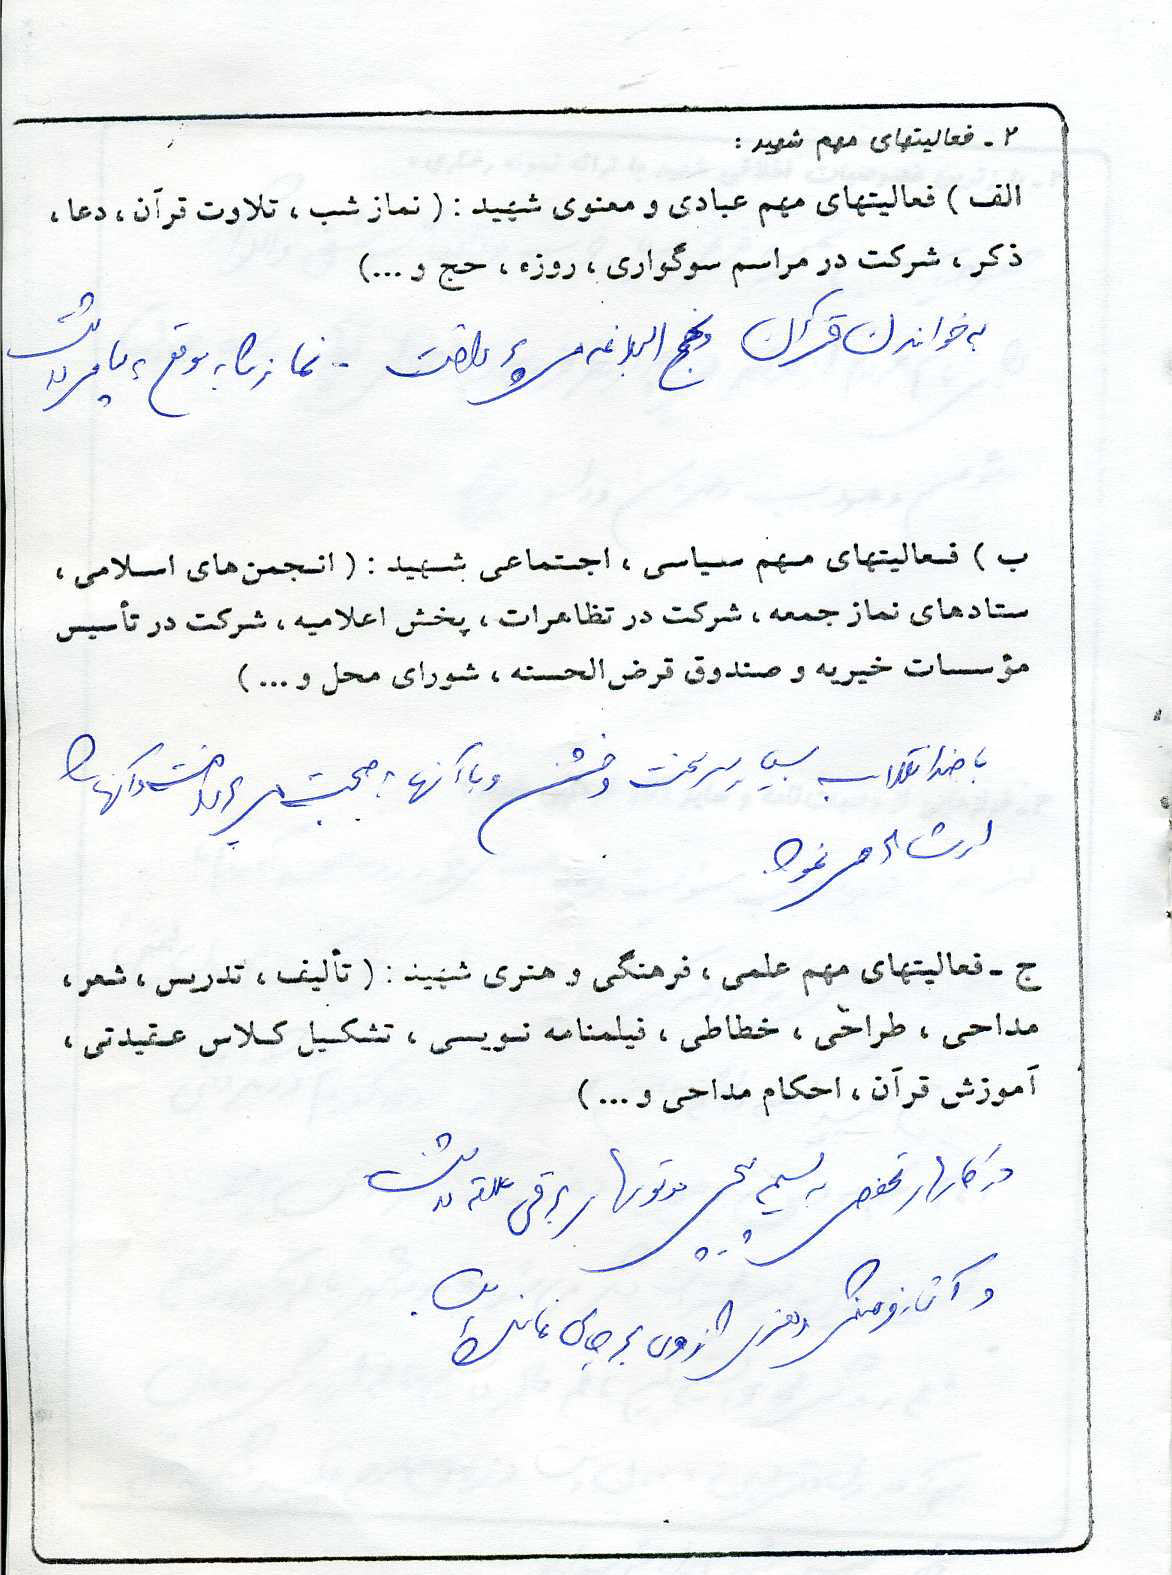 ۲ ـ فعالیتهای مهم شهید :
الف ) فعالیتهای مهم عبادی و معنوی شهید : ( نماز شب ، تلاوت قرآن ، دعا ،
ذکر ، شرکت در مراسم سوگواری ، روزه ، حج و ... )
به خواندن قرآن و نهج البلاغه می پرداخت - نماز را به موقع بپا می داشت
ب ) فعالیتهای مهم سیاسی ، اجتماعی شهید : ( انجمن‌های اسلامی ،
ستادهای نماز جمعه ، شرکت در تظاهرات ، پخش اعلامیه ، شرکت در تأسیس
مؤسسات خیریه و صندوق قرض‌الحسنه ، شورای محل و ... )
با ضد انقلاب بسیار سرسخت و خشن و با آنها به صحبت می پرداخت و آنها را
ارشاد می نمود
ج ـ فعالیتهای مهم علمی ، فرهنگی و هنری شهید : ( تألیف ، تدریس ، شعر ،
مداحی ، طراحی ، خطاطی ، فیلمنامه نویسی ، تشکیل کلاس عقیدتی ،
آموزش قرآن ، احکام مداحی و ... )
در کارهای فنی به سیم پیچی موتورهای برقی علاقه داشت
و آثار فرهنگی و هنری از وی بر جای نمانده است.